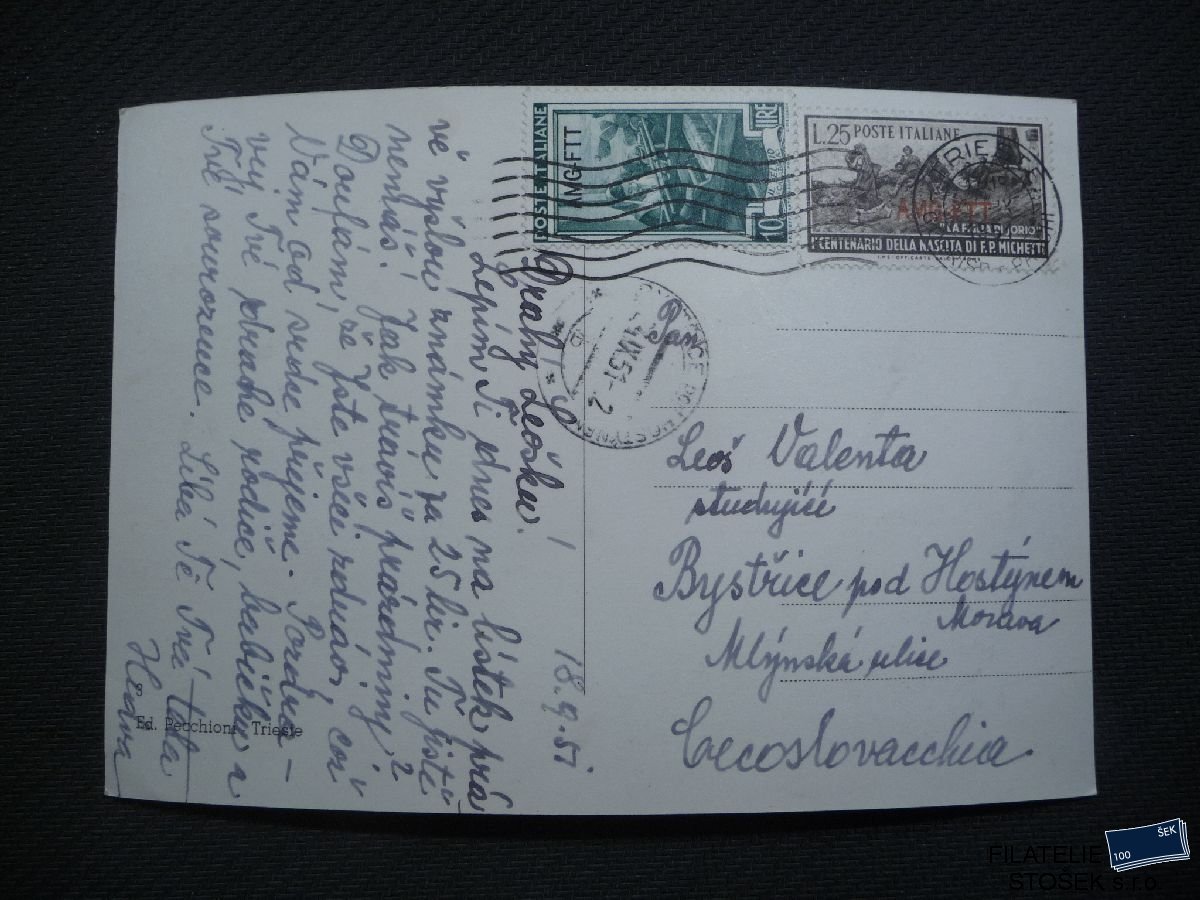 18.9.51
Drahý Leošku!
Lepím Ti dnes na lístek prá
vě výšlou známku za 25 lir. Tu jistě
nemáš! Jak trávíš prázdniny?
Doufám, že jste všici zdrávi, což
Vám od srdce přejeme. Pozdra-
vuj Tvé drahé rodiče, babičku a
Tvé sourozence. Líbá Tě Tvá teta
Heďva
8
Ed. Pecchioni, Trieste
POSTE ITALIANE
AMG-FTT
10 LIRE
L.25 POSTE ITALIANE
AMG-FTT
"LA FIGLIA DI JORIO"
I° CENTENARIO DELLA NASCITA DI F.P. MICHETTI
TRIESTE
IX.51-2
HOSTÝNEM
Pan
Leoš Valenta
studující
Bystřice pod Hostýnem
Morava
Mlýnská ulice
Cecoslovacchia
100 ŠEK
FILATELIE
STOŠEK s.r.o.